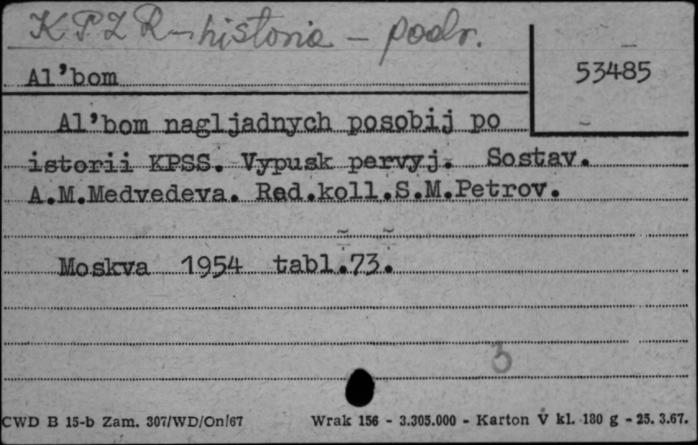 KPZR - historia - podr.
Al’bom
53485
Al’bom nagljadnych posobij po
istorii KPSS. Vypusk pervyj. Sostav.
A.M.Medvedeva. Red.koll.S.M.Petrov.
Moskva 1954 tabl.73.
3
CWD B 15-b Zam. 307/WD/On/67 Wrak 156 - 3.305.000 - Karton V kl. 180 g - 25. 3.67.